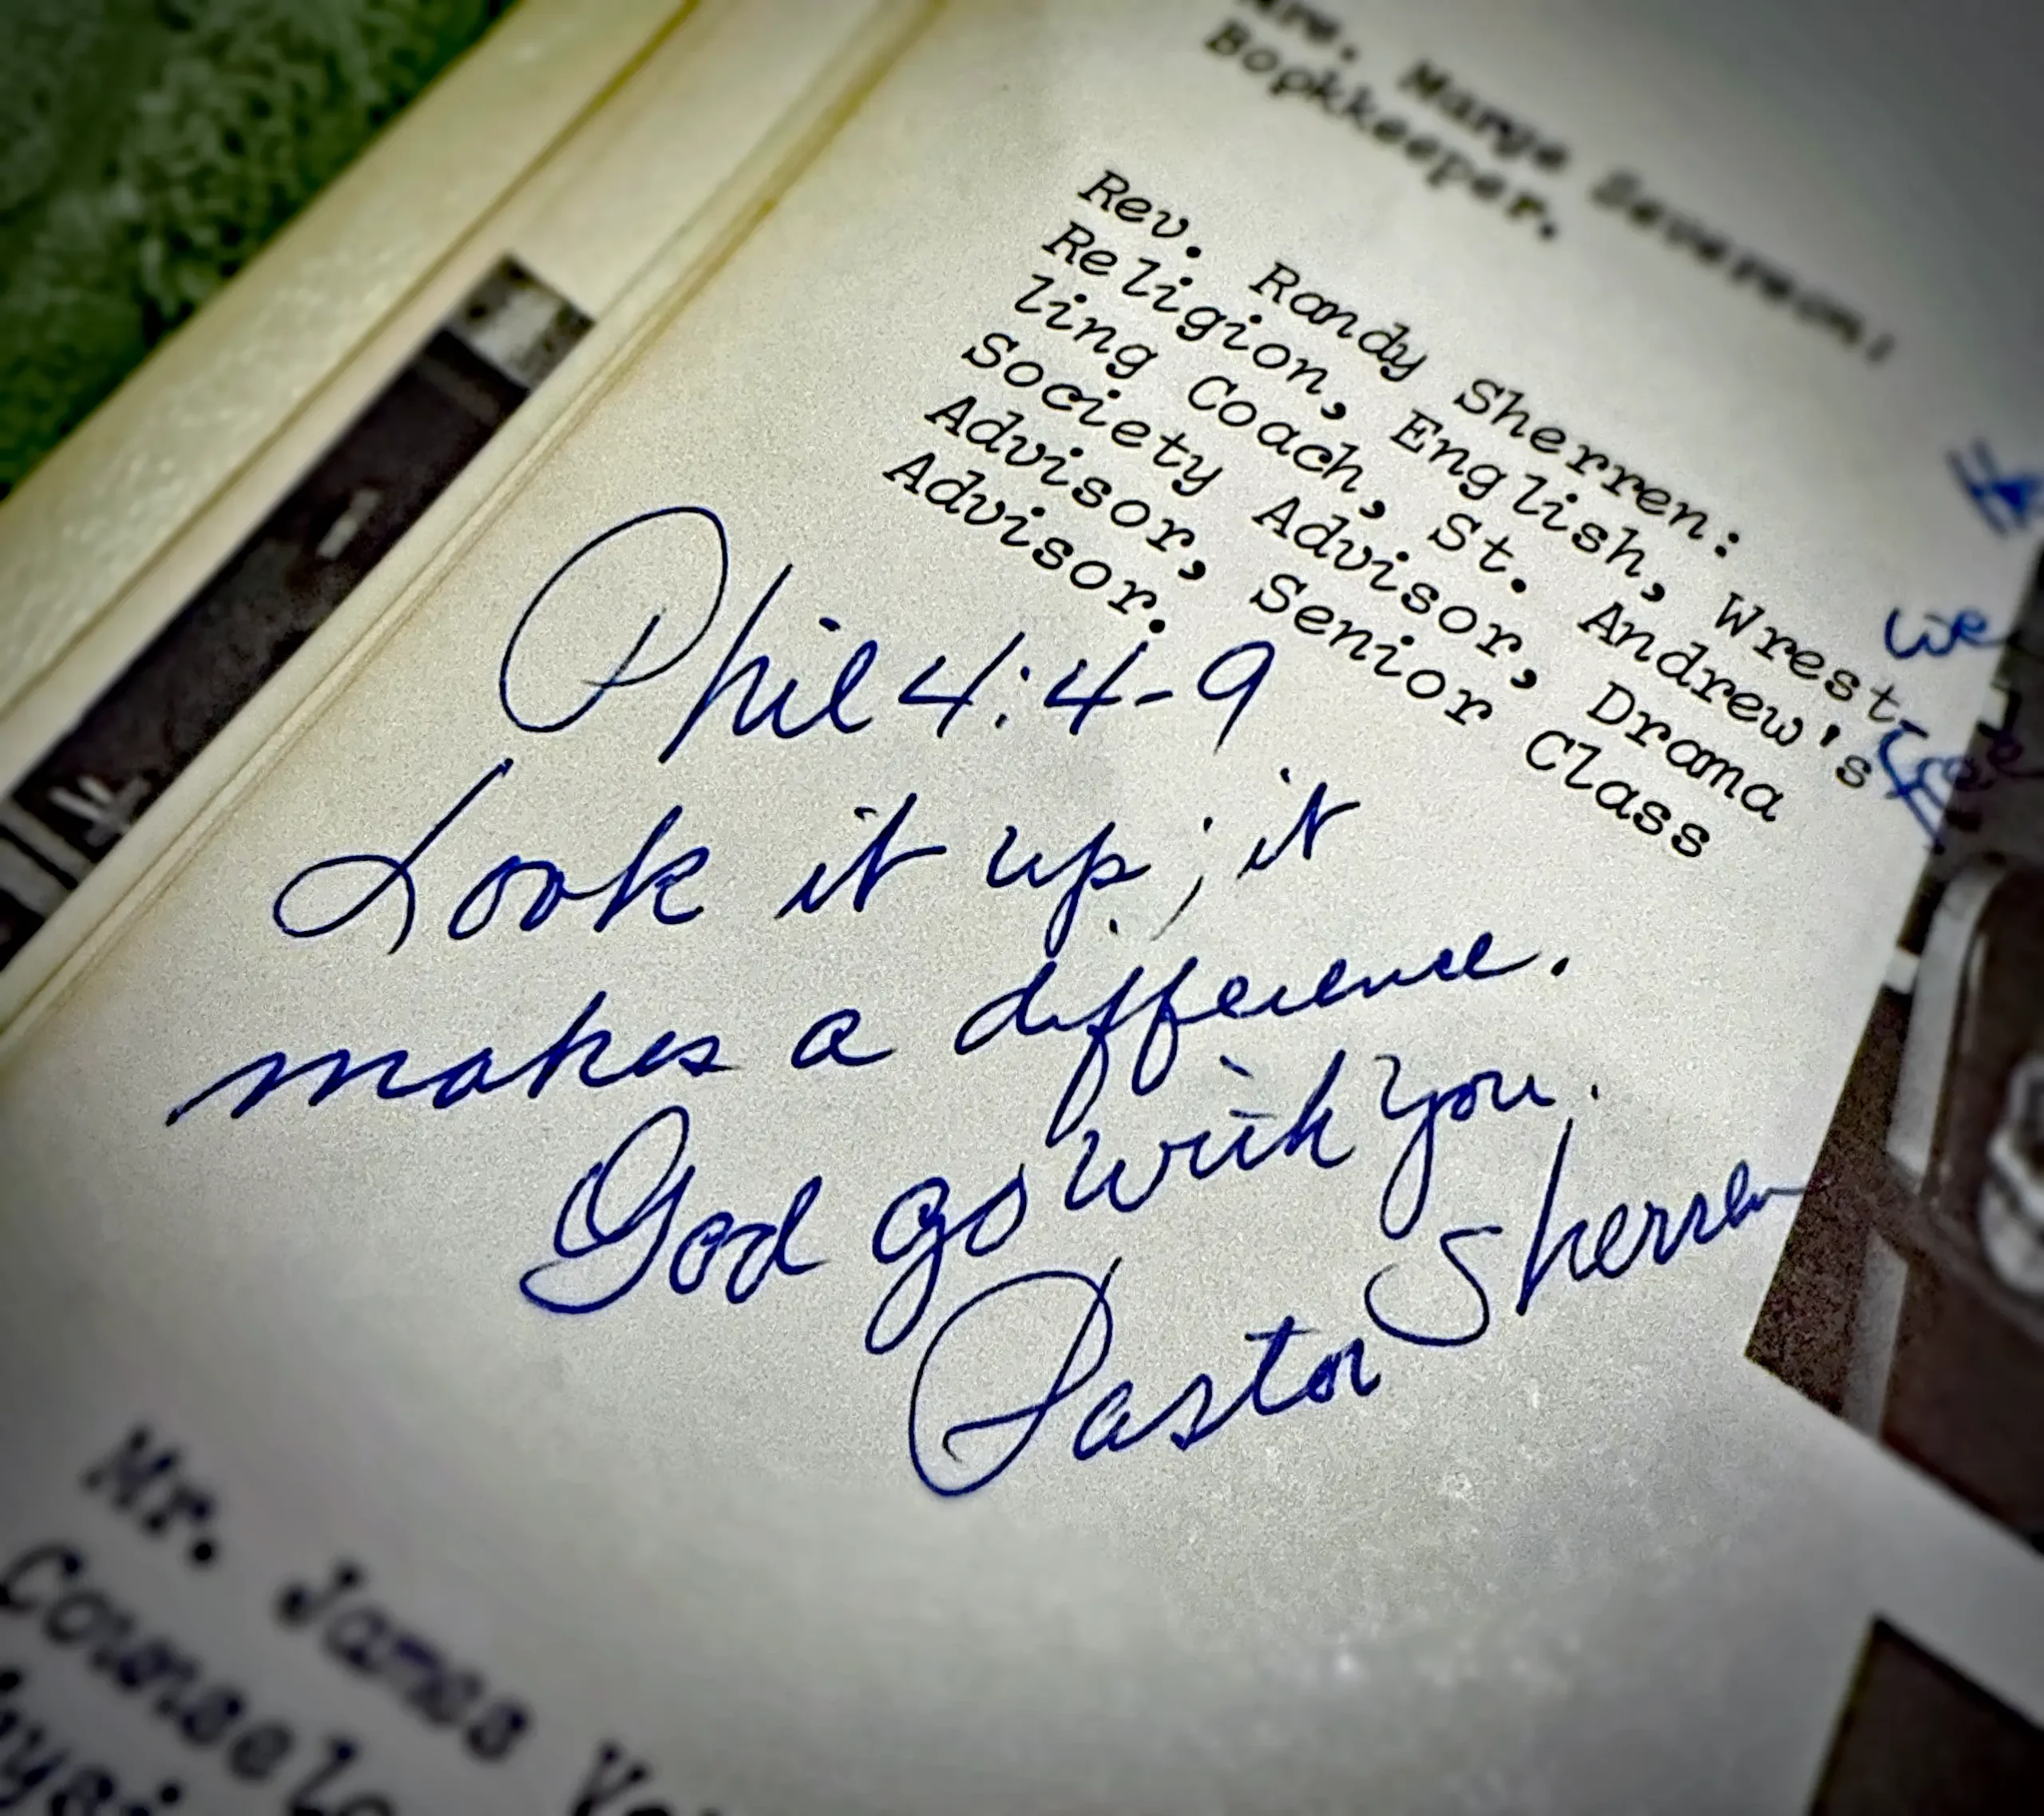 Mrs. Marge Severson:
Bookkeeper.
Rev. Randy Sherren:
Religion, English, Wrest-
ling Coach, St. Andrew's
Society Advisor, Drama
Advisor, Senior Class
Advisor.
we
free
Phil 4:4-9
Look it up; it
makes a difference.
God go with you.
Pastor Sherren
Mr. James